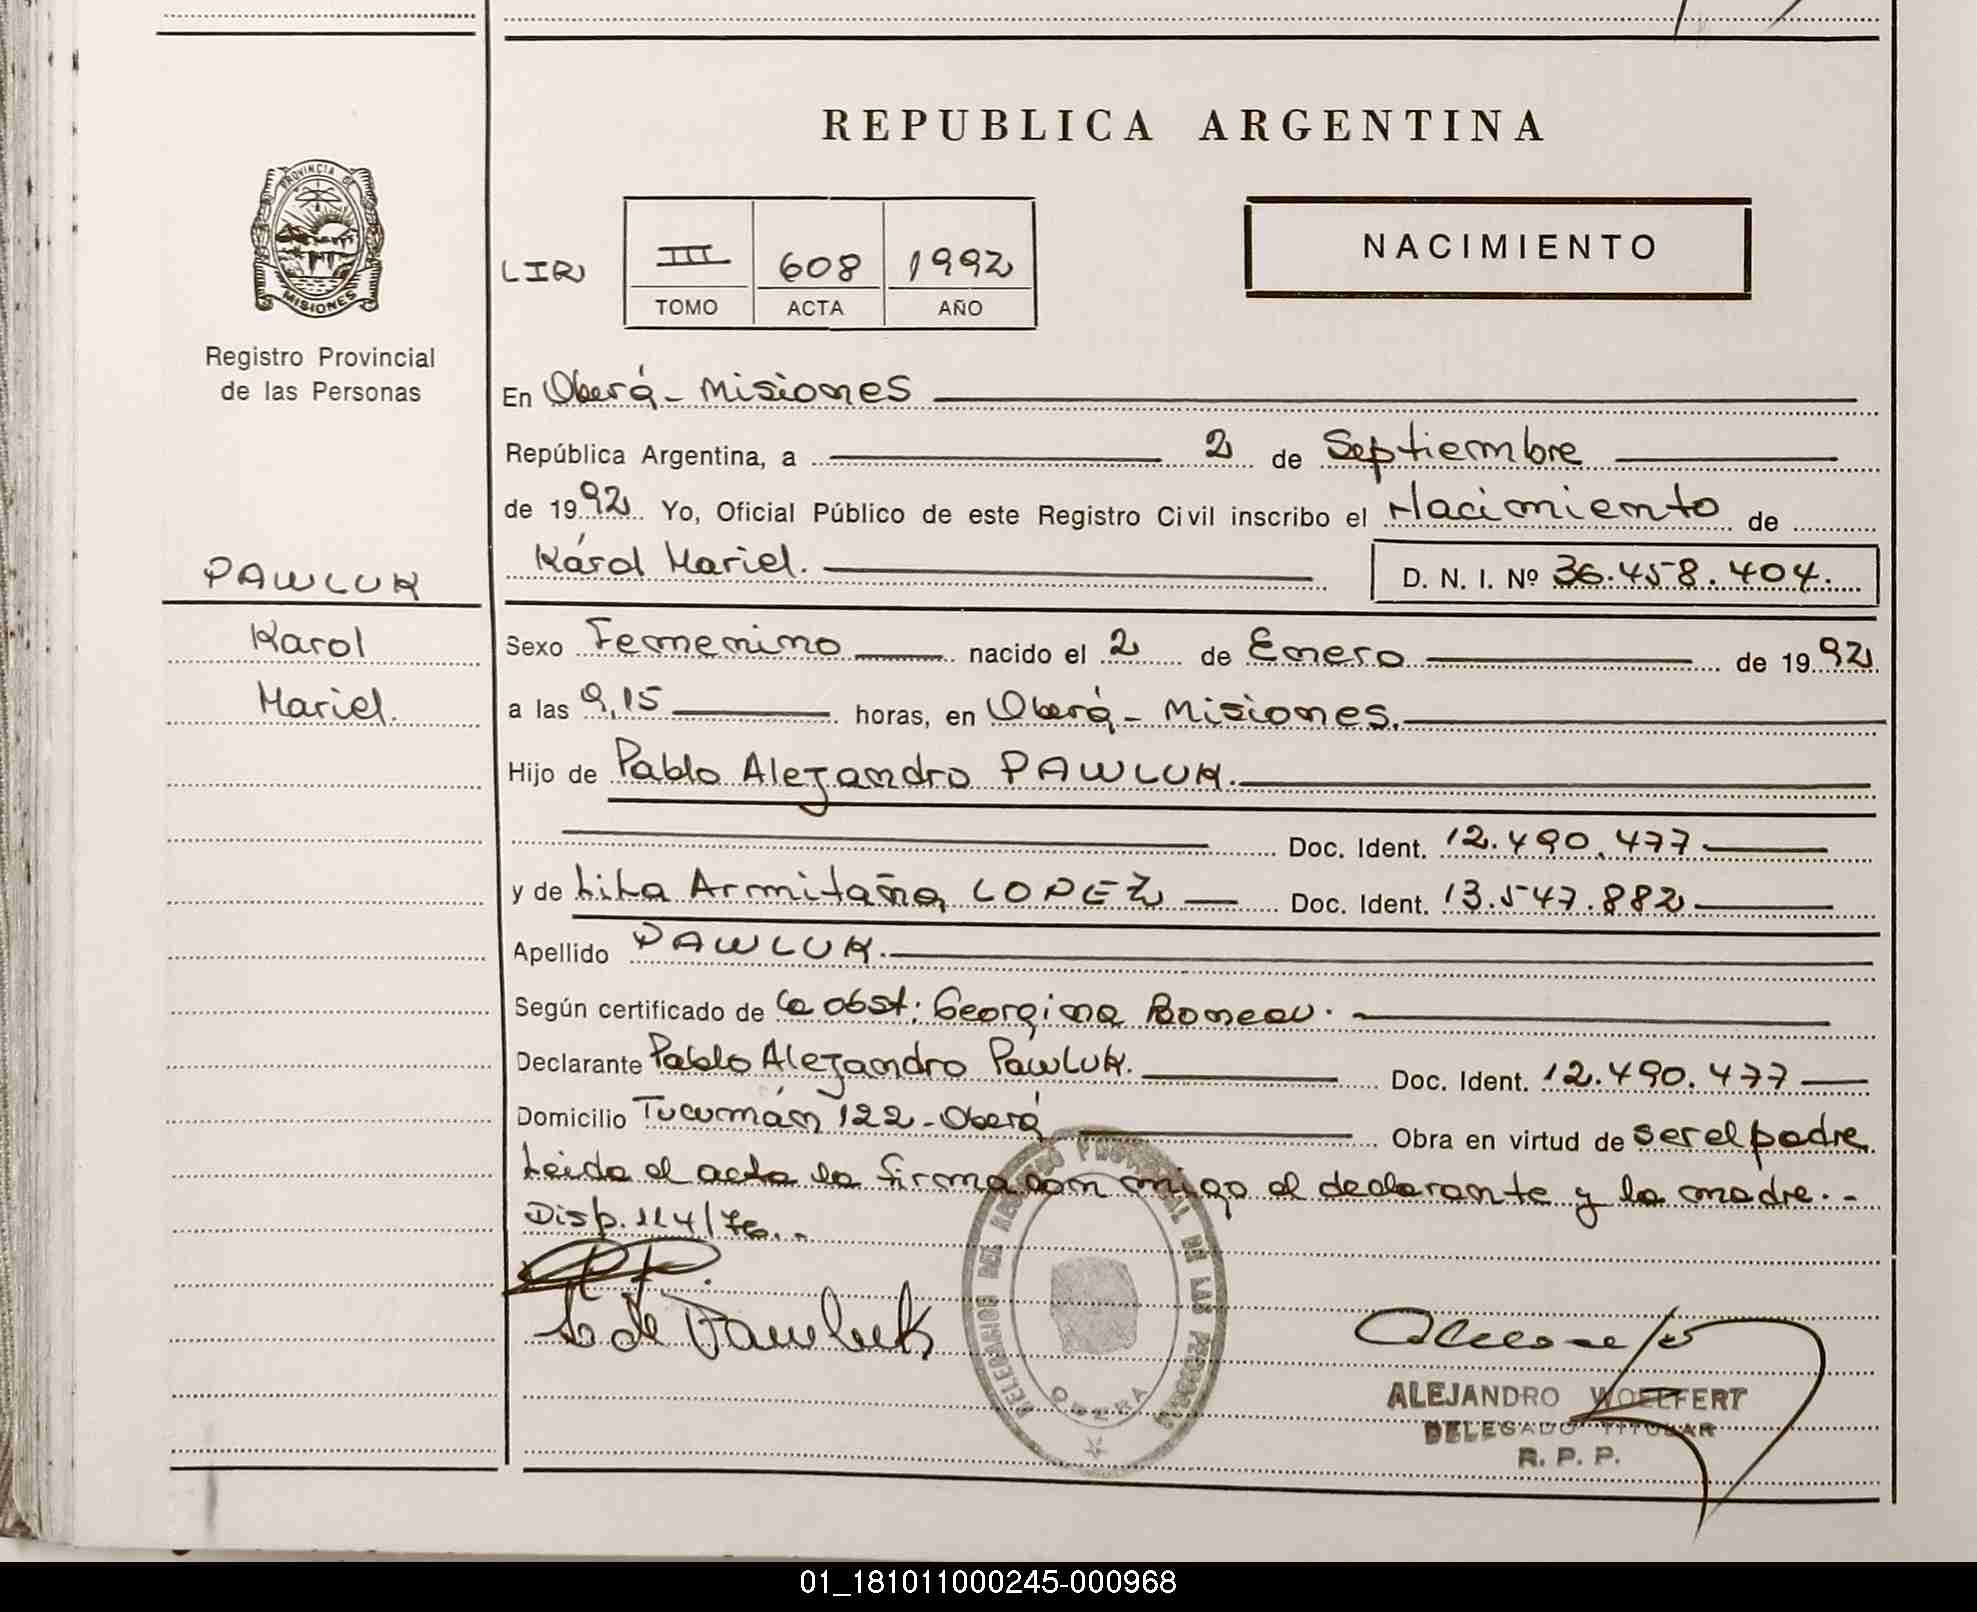 REPUBLICA ARGENTINA
PROVINCIA DE
MISIONES
Registro Provincial
de las Personas
LIR III 608 1992
TOMO ACTA AÑO
NACIMIENTO
En Oberá - Misiones
República Argentina, a 2 de Septiembre
de 1992 Yo, Oficial Público de este Registro Civil inscribo el Nacimiento de
Károl Mariel. D. N. I. Nº 36.458.404.
PAWLUK
Karol
Mariel.
Sexo Femenino nacido el 2 de Enero de 1992
a las 9,15 horas, en Oberá - Misiones.
Hijo de Pablo Alejandro PAWLUK.
Doc. Ident. 12.490.477
y de Lila Armitaña LOPEZ Doc. Ident. 13.547.882
Apellido PAWLUK.
Según certificado de la obst: Georgina Boneau.
Declarante Pablo Alejandro Pawluk. Doc. Ident. 12.490.477
Domicilio Tucumán 122 - Oberá Obra en virtud de ser el padre
Leida el acta la firma con migo el declarante y la madre. -
Disp. 114/76. -
L. de Pawluk
DELEGACION DEL REGISTRO PROVINCIAL DE LAS PERSONAS
OBERA
ALEJANDRO WOELFERT
DELEGADO TITULAR
R. P. P.
01_181011000245-000968